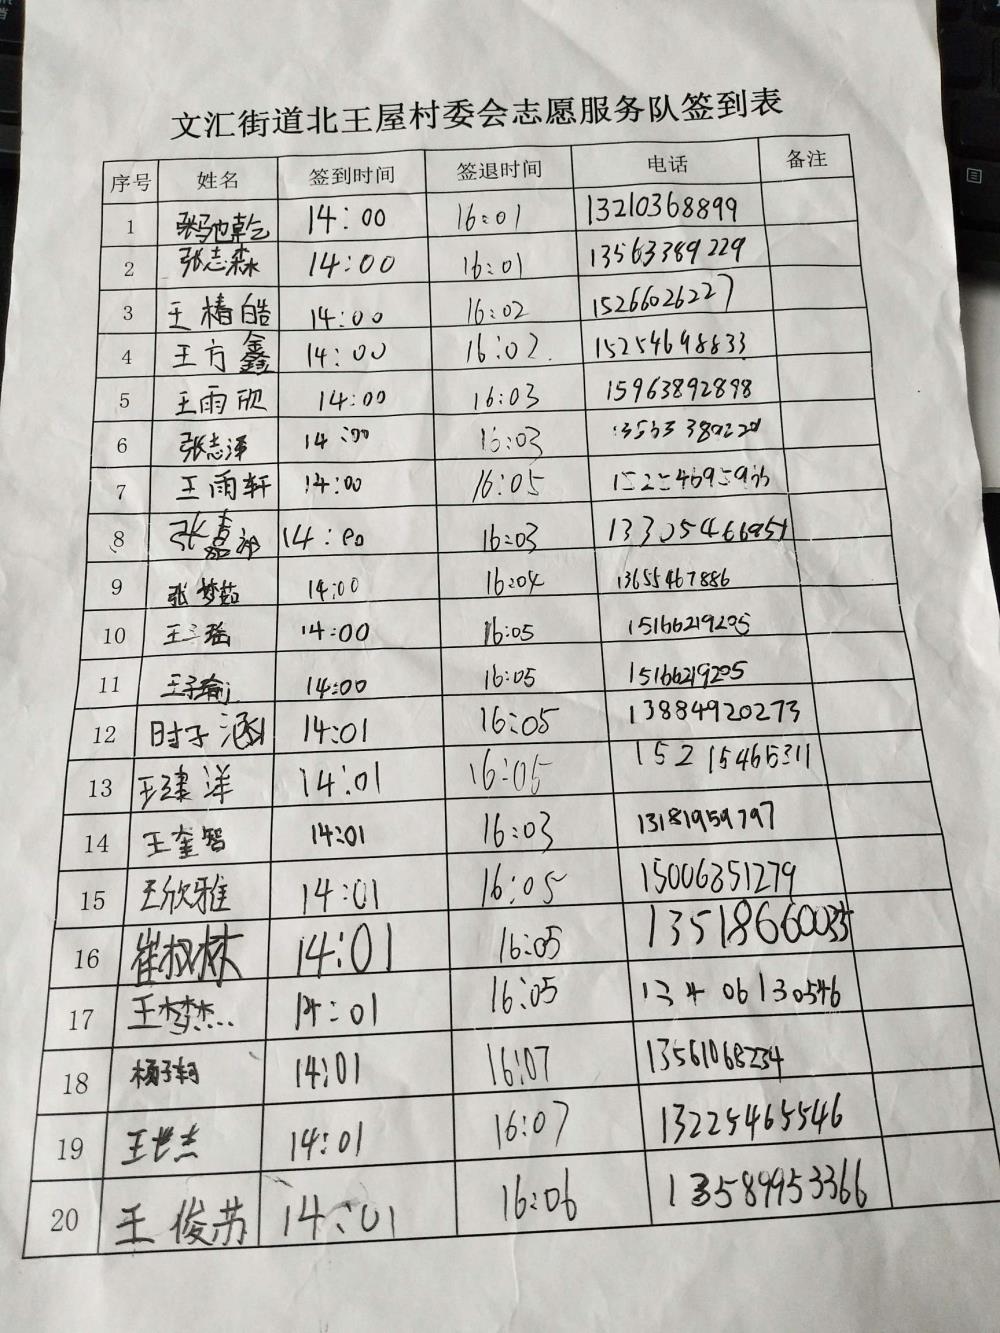 文汇街道北王屋村委会志愿服务队签到表
序号 姓名 签到时间 签退时间 电话 备注
1 张驰乾 14:00 16:01 13210368899
2 张志森 14:00 16:01 13563389229
3 王椿皓 14:00 16:02 15266026227
4 王方鑫 14:00 16:02 15254698833
5 王雨欣 14:00 16:03 15963892898
6 张志泽 14:00 16:03
7 王雨轩 14:00 16:05
8 张嘉 14:00 16:03
9 张梦茹 14:00 16:04 13655467886
10 14:00 16:05 15166219205
11 王子瑜 14:00 16:05 15166219205
12 时子涵 14:01 16:05 13884920273
13 王建洋 14:01 16:05 15215465311
14 王奎智 14:01 16:03 13181959797
15 王欣雅 14:01 16:05 15006351279
16 14:01 16:05 13518660035
17 王梦杰 14:01 16:05 13406130546
18 杨子轲 14:01 16:07 13561068234
19 王世杰 14:01 16:07 13225465546
20 王俊苏 14:01 16:06 13589953366